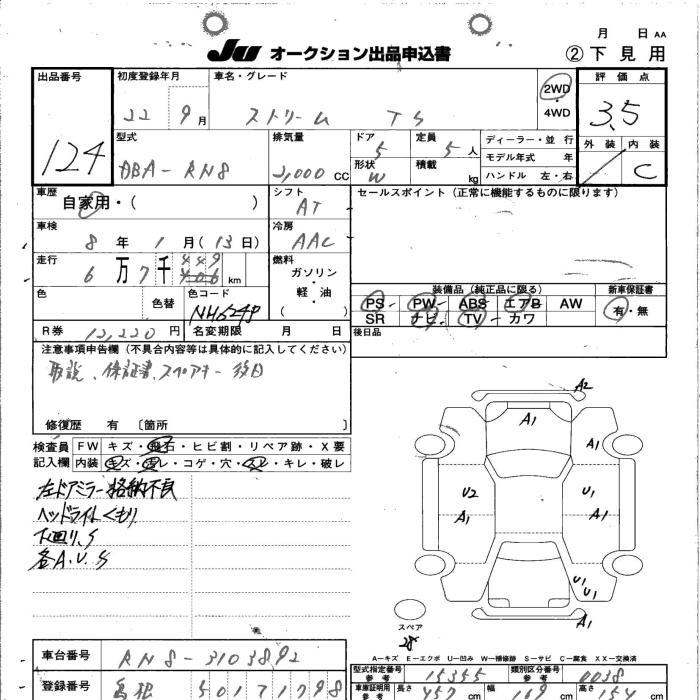 月 日 AA
JU オークション出品申込書 ②下見用
出品番号 初度登録年月 車名・グレード 2WD・4WD 評価点
124 22 9月 ストリーム TS 3.5
型式 排気量 ドア 定員 ディーラー・並行 外装 内装
DBA-RN8 2,000 CC 5 5人 モデル年式 年 C
形状 W 積載 kg ハンドル 左・右
車歴 自家用・( ) シフト AT セールスポイント(正常に機能するものに限ります)
車検 8年 1月(13日) 冷房 AAC
走行 6万7千449 km 燃料 ガソリン・軽・油 ( )
装備品(純正品に限る) 新車保証書
色 色替 色コード NH624P PS PW ABS エアB AW 有・無
SR ナビ TV カワ
R券 12,220円 名変期限 月 日 後日品
注意事項申告欄(不具合内容等は具体的に記入してください)
取説、保証書、スペアキー 後日
修復歴 有 〔箇所 〕
検査員記入欄 FW キズ・飛石・ヒビ割・リペア跡・X要
内装 キズ・汚レ・コゲ・穴・スレ・キレ・破レ
左ドアミラー格納不良
ヘッドライトくもり
下回り、S
各A.U.S
A2
A1
A1
U2 U1
A1 A1
U1
U1
A1
スペア
A-キズ E-エクボ U-凹み W-補修跡 S-サビ C-腐食 XX-交換済
車台番号 RN8-3103892
型式指定番号 参考 15355 類別区分番号 参考 0038
登録番号 島根 501 71798
車庫証明用 参考 長さ 457 cm 幅 cm 高さ cm